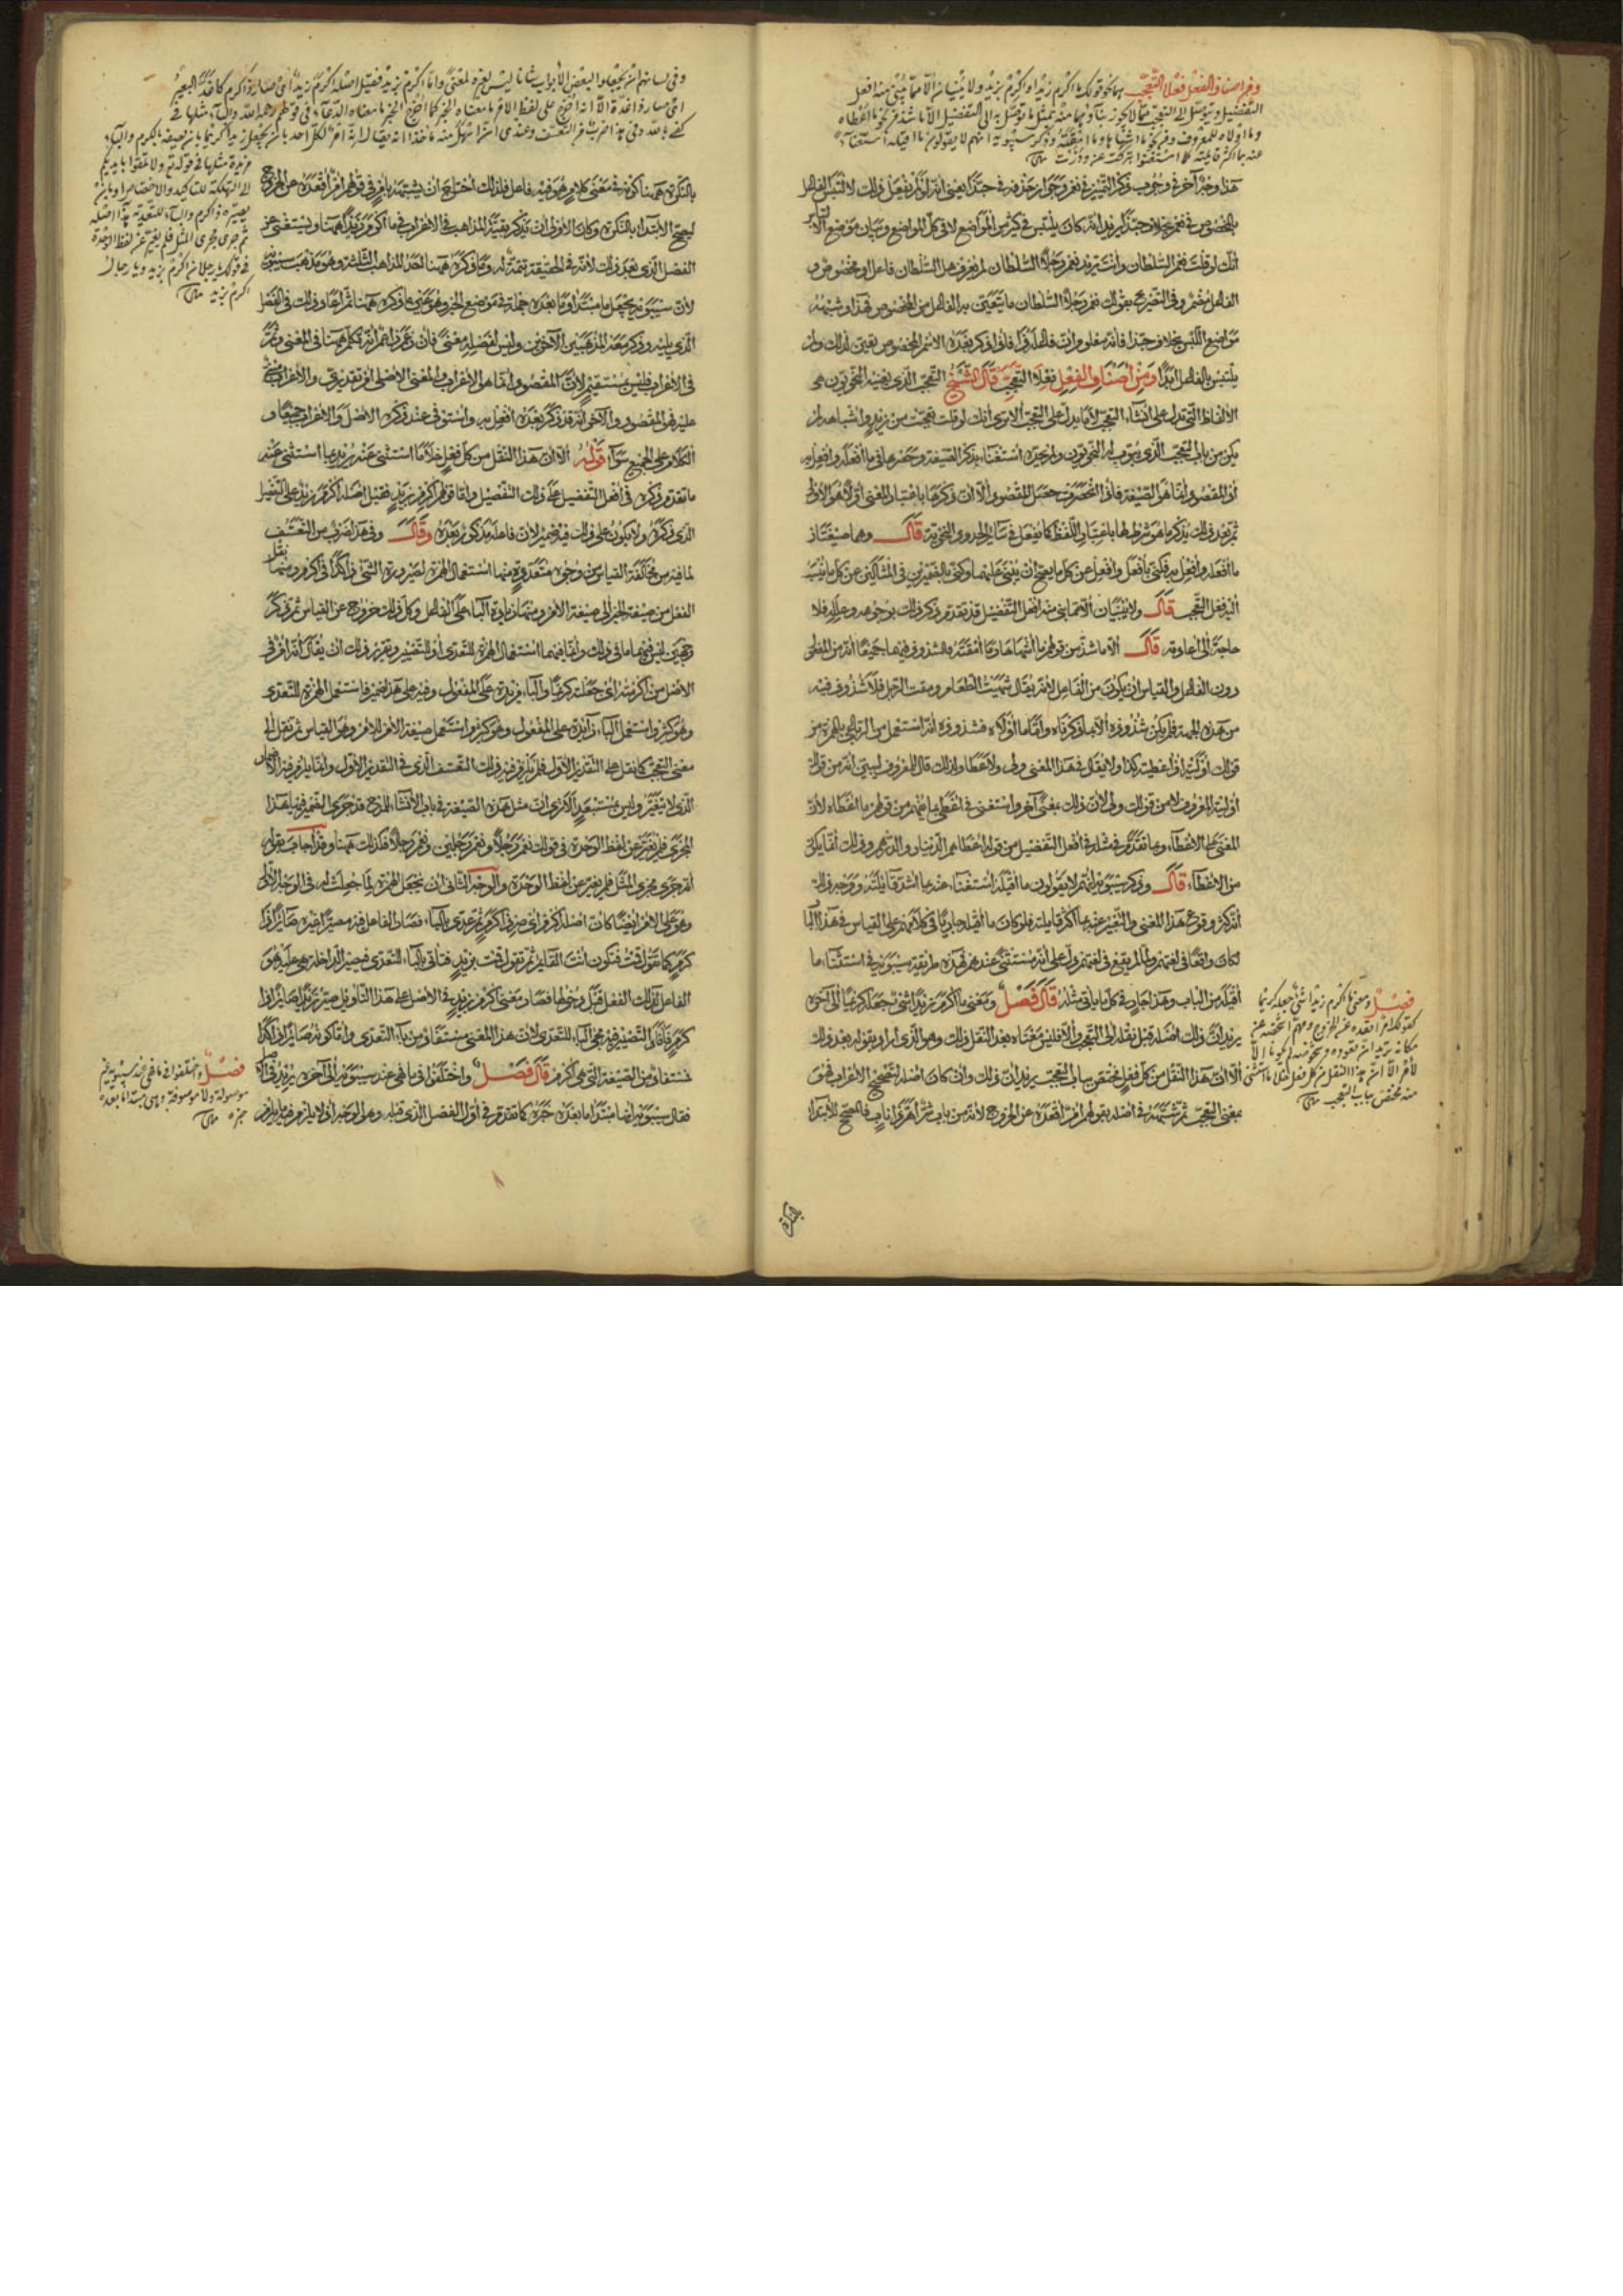 ومن اصناف الفعل فعلا التعجب هما نحو قولك ما اكرم زيدا واكرم بزيد ولا يبنيان الا مما يبنى منه افعل
التفضيل ويتوصل الى التعجب مما لا يجوز بناؤهما منه بمثل ما توصل به الى التفضيل الا ما شذ من نحو ما اعطاه
وما اولاه للمعروف ومن نحو ما اشهاها وما امقته وذكر سيبويه انهم لا يقولون ما اقيله استغناء
عنه بما اكثر قائلته كما استغنوا بتركت عن وذرت
هذا وجه آخر في وجوب ذكر التمييز في نعم وجواز حذفه في حبذا يعني انه لو لم يفعل ذلك لالتبس الفاعل
بالمخصوص في نعم بخلاف حبذا يريد انه كان يلتبس في كثير من المواضع لا في كل المواضع وبيان موضع الالتباس
انك لو قلت نعم السلطان وانت تريد نعم رجلا السلطان لم يعرف هل السلطان فاعل او مخصوص و
الفاعل مضمر وفي التصريح بقولك نعم رجلا السلطان ما يتعين به الفاعل من المخصوص فهذا وشبهه
مواضع اللبس بخلاف حبذا فانه معلوم ان فاعله ذا فاذا ذكر بعده الاسم المخصوص تعين لذلك ولم
يلتبس بالفاعل ابدا ومن اصناف الفعل فعلا التعجب قال الشيخ التعجب الذي يعنيه النحويون هي
الالفاظ التي تدل على انشاء التعجب لا ما يدل على التعجب الا ترى انك لو قلت تعجبت من زيد واشباهه لم
يكن من باب التعجب الذي يبوب له النحويون ولم يحده استغناء بذكر الصيغة وحصرها في ما افعله وافعل به
اذ المقصود انما هو الصيغة فاذا انحصرت حصل المقصود الا ان ذكرها باعتبار المعنى اولا هو الاولى
ثم بعد ذلك يذكر ما هو شرطها باعتبار اللفظ كما يفعل في سائر الحدود النحوية قال وهما صيغتان
ما افعله وافعل به فكنى بافعل وافعل عن كل ما يصح ان يبنى عليهما وكنى بالضميرين في المثالين عن كل ما ينسب
اليه فعل التعجب قال ولا يبنيان الا مما بني منه افعل التفضيل قد تقدم ذكر ذلك بوجوهه وعلله فلا
حاجة الى اعادته قال الا ما شذ من قولهم ما اشهاها وما امقته فالشذوذ فيهما جميعا انه من المفعول
دون الفاعل والقياس ان يكون من الفاعل لانه يقال شهيت الطعام ومقت الرجل فلا شذوذ فيه
من هذه الجهة فلم يكن شذوذه الا بما ذكرناه واما ما اولاه فشذوذه انه استعمل من الرباعي بالهمزة من
قولك اوليته اذا اعطيته كذا ولا يفعل في هذا المعنى ولى ولا عطا ولذلك قال للمعروف ليبين انه من قولك
اوليته المعروف لا من قولك ولى لان ذلك بمعنى آخر واستغنى في اعطى بما يفهم من قولهم ما اعطاه لان
المعنى على الاعطاء وما تقدم في مثله في افعل التفضيل من قوله اعطاهم الدينار والدرهم وذلك انما يكون
من الاعطاء قال وذكر سيبويه انهم لا يقولون ما اقيله استغناء عنه بما اشد قائلته ووجه ذلك
انه كثر وقوع هذا المعنى والتعبير عنه بما اكثر قائلته فلو كان ما اقيله جاريا في كلامهم على القياس في هذا الباب
لكان واقعا في لغتهم ولما لم يقع في لغتهم دل على انه مستثنى عندهم فهذه طريقة سيبويه في استثناء ما
اقيله من الباب وهذا جار في كل ما ياتي مثله قال فصل ومعنى ما اكرم زيدا شيء جعله كريما الى آخره
يريد ان ذلك اصله قبل نقله الى التعجب والا فليس معناه بعد النقل ذلك وهو الذي اراد بقوله بعد ذلك
الا ان هذا النقل من كل فعل مختص بباب التعجب يريد ان ذلك وان كان اصله لتصحيح الاعراب فهو
بمعنى التعجب ثم شبهه في اصله بقولهم امر اقعده عن الخروج لانه من باب شر اهر ذا ناب فالمصحح للابتداء
فصل ومعنى ما اكرم زيدا شيء جعله كريما
كقولك امر اقعده عن الخروج ومهم اشخصه عن
مكانه تريد ان قعوده وشخوصه لم يكونا الا
لامر الا ان هذا النقل من كل فعل ما استثني
منه مختص بباب التعجب
بالنكرة
وفي لسانهم ان يجعلوا لبعض الابواب شانا ليس لغيره لمعنى واما اكرم بزيد فقيل اصله اكرم زيد اي صار ذا كرم كاغد البعير
اي صار ذا غدة الا انه اخرج على لفظ الامر ما معناه الخبر كما اخرج الخبر ما معناه الدعاء في قولهم رحمه الله والباء مثلها في
كفى بالله وفي هذا ضرب من التعسف وعندي ان اسهل منه ماخذا ان يقال انه امر لكل احد بان يجعل زيدا كريما اي بان يصفه بالكرم والباء
مزيدة مثلها في قوله تع ولا تلقوا بايديكم
الى التهلكة للتاكيد والاختصاص او بان
يصيره ذا كرم والباء للتعدية هذا اصله
ثم جرى مجرى المثل فلم يغير عن لفظ الواحد
في قولك يا رجلان اكرم بزيد ويا رجال
اكرم بزيد
بالنكرة ههنا كونه في معنى كلام هو فيه فاعل فلذلك احتاج ان يشبهه بامر في قولهم امر اقعده عن الخروج
ليصح الابتداء بالنكرة وكان الاولى ان يذكر بقية المذاهب في الاعراب في ما اكرم زيدا ههنا ويستغني عن
الفصل الذي بعد ذلك لانه في الحقيقة تتمة له وما ذكره ههنا احد المذاهب الثلاثة وهو مذهب سيبويه
لان سيبويه يجعل ما مبتدا وما بعده جملة في موضع الخبر وهو نحو ما ذكره ههنا ثم اعاد ذلك في الفصل
الذي يليه وذكر معه المذهبين الآخرين وليس لفصله معنى فان زعم زاعم انه تكلم ههنا في المعنى وثم
في الاعراب فليس بمستقيم لان المقصود انما هو الاعراب والمعنى الاصلي امر تقديري والاعراب مبني
عليه فهو المقصود والآخر انه قد ذكر بعده افعل به واستوفى عند ذكره الاصل والاعراب جميعا و
الكلام على الجميع سواء قوله الا ان هذا النقل من كل فعل خلا ما استثني عنه يريد بما استثني عنه
ما تقدم ذكره في افعل التفضيل على ذلك التفصيل واما قولهم اكرم بزيد فقيل اصله اكرم زيد على التفصيل
الذي ذكره ولا يكون على ذلك فيه ضمير لان فاعله مذكور بعده وقال وفي هذا ضرب من التعسف
لما فيه من مخالفة القياس من وجوه متعددة منها استعمال الهمزة لصيرورة الشيء ذا كذا في اكرم ومنها نقل
الفعل من صيغة الخبر الى صيغة الامر ومنها زيادة الباء على الفاعل وكل ذلك خروج عن القياس ثم ذكر
وجهين ليس فيهما ما في ذلك وانما فيهما استعمال الهمزة للتعدي او للتصيير وتقرير ذلك ان يقال انه امر في
الاصل من اكرمته اي جعلته كريما والباء مزيدة على المفعول وفيه على هذا ضمير فاستعمل الهمزة للتعدي
وهو كثير واستعمل الباء زائدة على المفعول وهو كثير واستعمل صيغة الامر للامر وهو القياس ثم نقل الى
معنى التعجب كما نقل على التقدير الاول فلم يلزم فيه ذلك التعسف الذي في التقدير الاول وانما يلزم فيه الاضمار
الذي لا يتغير وليس بمستبعد الا ترى ان مثل هذه الصيغة في باب الانشاء للمدح قد جرى الضمير فيها هذا
المجرى فلم يتغير عن لفظ الوحدة في قولك نعم رجلا ونعم رجلين ونعم رجالا فكذلك ههنا وقد اجاب بقوله
انه جرى مجرى المثل فلم يغير عن لفظ الوحدة والوجه الثاني ان تجعل الهمزة لما جعلت له في الوجه الاول
وهو على الامر ايضا كان اصله اكرم اي صر ذا كرم ثم عدي بالباء فصار الفاعل فيه مصيرا غيره صائرا ذا
كرم كما تقول قمت فتكون انت القائم ثم تقول قمت بزيد فتاتي بالباء للتعدي فيصير الداخلة هي عليه هو
الفاعل لذلك الفعل قبل دخولها فصار معنى اكرم بزيد في الاصل على هذا التاويل صير زيدا صائرا ذا
كرم فاما التصيير فيه فمجيء الباء للتعدي لان هذا المعنى مستفاد من باء التعدي واما كونه صائرا ذا كذا
مستفاد من الصيغة التي هي اكرم قال فصل واختلفوا في ما هي عند سيبويه الى آخره يريد في الاصل
فقال سيبويه انها مبتدا ما بعده خبره كما تقدم في اول الفصل الذي قبله وهو الوجه اذ لا يلزم فيه ما يلزم
فصل واختلفوا في ما فهي عند سيبويه غير
موصولة ولا موصوفة وهي مبتدا ما بعده
خبره